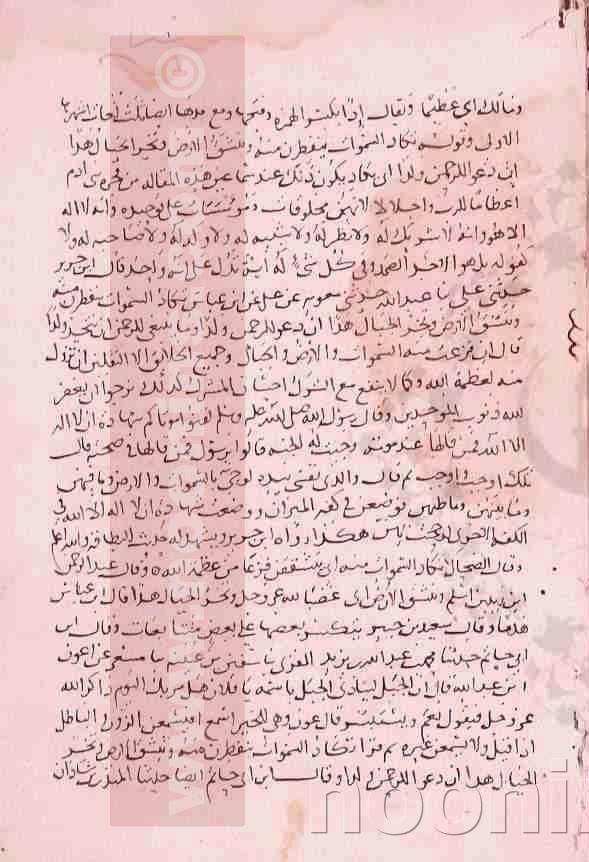 ومالك اي عظيما ويقال إدا بكسر الهمزه وفتحها ومع مدها ايضا ثلث لغات اشهرها
الاولى وقوله تكاد السموات يتفطرن منه وتنشق الارض وتخر الجبال هدا
ان دعوا للرحمن ولدا اي يكاد يكون ذلك عند سماعهن هذه المقاله من فجره بني ادم
اعظاما للرب واجلالا لانهن مخلوقات ومؤسسات على توحيده وانه لا اله
الا هو وانه لا شريك له ولا نظير له ولا شبيه له ولا ولد له ولا صاحبه له ولا
كفو له بل هو الاحد الصمد وفي كل شيء له آية تدل على انه واحد قال ابن جرير
حدثني علي ثنا عبد الله حدثني معويه عن علي عن ابن عباس تكاد السموات يتفطرن منه
وتنشق الارض وتخر الجبال هدا ان دعوا للرحمن ولدا وما ينبغي للرحمن ان يتخذ ولدا
قال ان فزعت منه السموات والارض والجبال وجميع الخلائق الا الثقلين ان تزول
منه لعظمة الله وكما لا ينفع مع الشرك احسان المشرك كذلك نرجو ان يغفر
الله ذنوب الموحدين وقال رسول الله صلى الله عليه وسلم لقنوا موتاكم شهادة ان لا اله
الا الله فمن قالها عند موته وجبت له الجنه قالوا يرسول فمن قالها في صحته قال
تلك اوجب واوجب ثم قال والذي نفسي بيده لو جئ بالسموات والارض وما فيهن
وما بينهن وما تحتهن فوضعن في كفه الميزان ووضعت شهادة ان لا اله الا الله في
الكفه الاخرى لرجحت بهن هكذا رواه ابن جرير ويشهد له حديث البطاقه والله اعلم
وقال الضحاك تكاد السموات منه اي يتشققن فزعا من عظمة الله وقال عبد الرحمن
ابن زيد بن اسلم وتنشق الارض اي غضبا لله عز وجل وتخر الجبال هدا قال ابن عباس
هدما وقال سعيد بن جبير ينكسر بعضها على بعض متتابعات وقال ابن
ابي حاتم حدثنا محمد بن عبد الله بن يزيد المقري ثنا سفين بن عيينه ثنا مسعر عن عون
ابن عبد الله قال ان الجبل لينادي الجبل باسمه يا فلان هل مر بك اليوم ذاكر الله
عز وجل فيقول نعم ويستبشر قال عون وهي للخير اسمع افيسمعن الزور والباطل
اذا قيل ولا يسمعن غيره ثم قرا تكاد السموات يتفطرن منه وتنشق الارض وتخر
الجبال هدا ان دعوا للرحمن ولدا وقال ابن ابي حاتم ايضا حدثنا المنذر بن شاذان
nooni